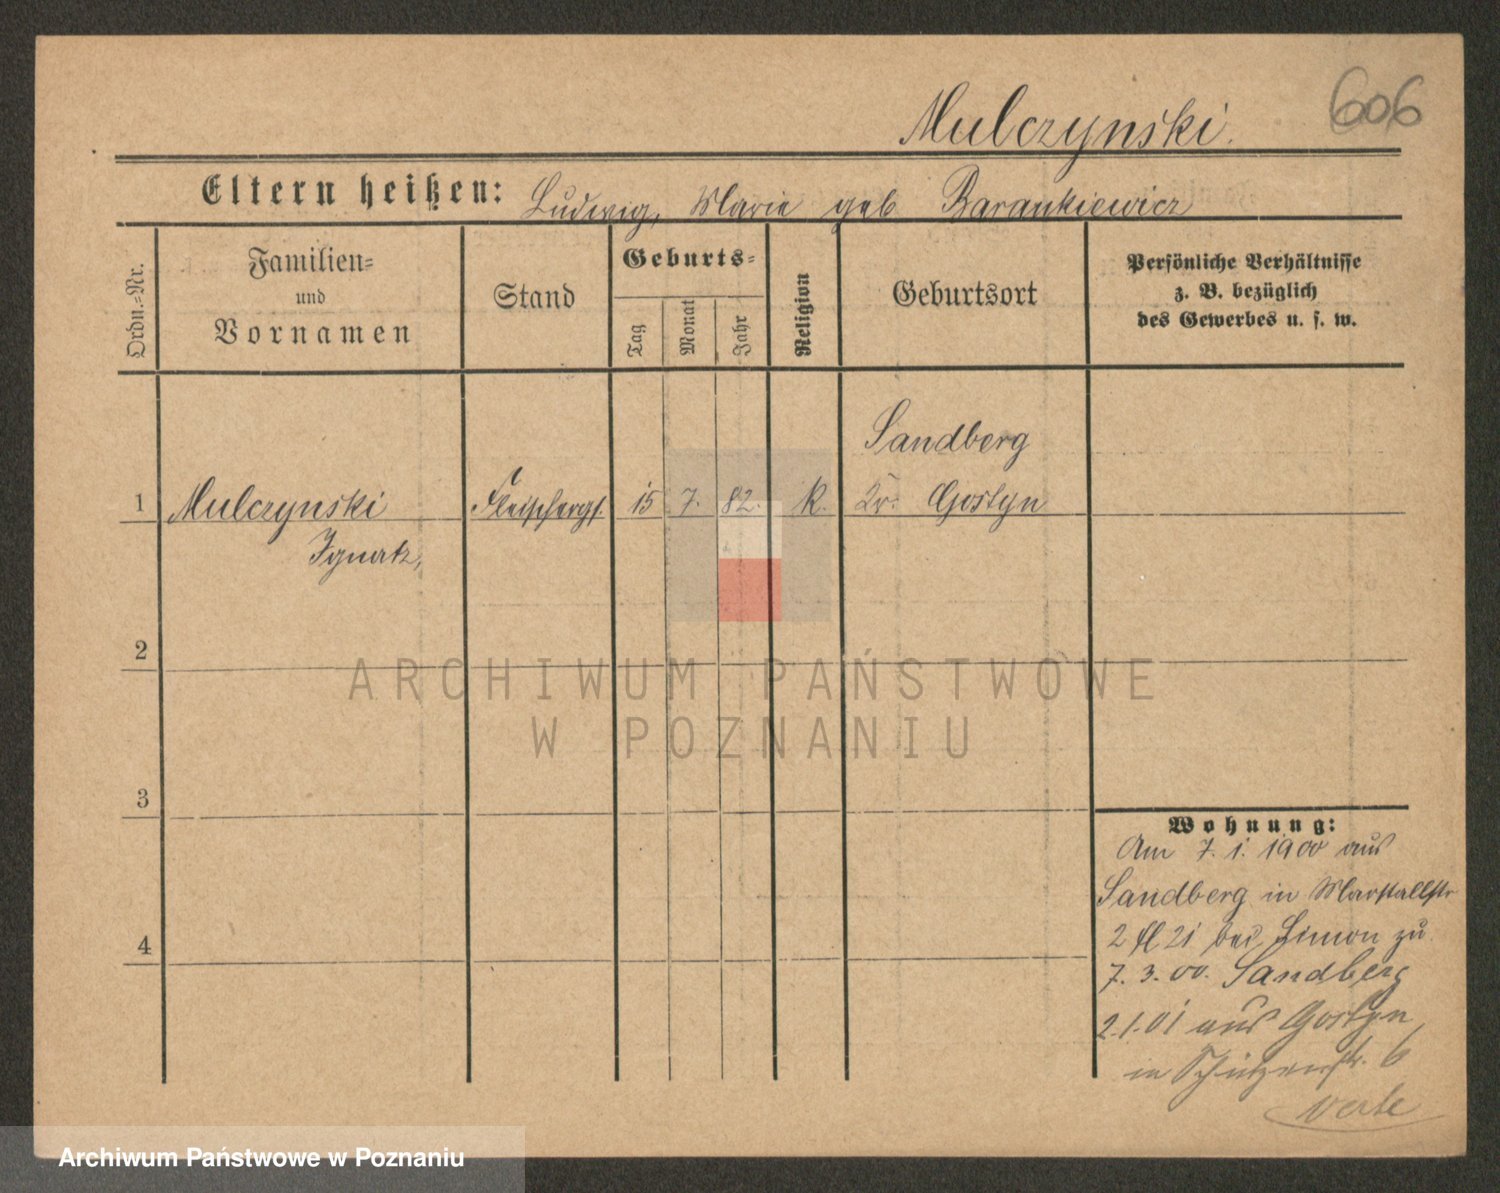 606
Mulczynski.
Eltern heißen: Ludwig, Marie geb Barankiewicz
Ordn.=Nr.
Familien=
und
Vornamen
Stand
Geburts=
Tag
Monat
Jahr
Religion
Geburtsort
Persönliche Verhältnisse
z. B. bezüglich
des Gewerbes u. s. w.
Sandberg
1 Mulczynski Fleischergs. 15 7. 82. K. Kr. Gostyn
Ignatz,
2
ARCHIWUM PAŃSTWOWE
W POZNANIU
3
4
Wohnung:
Am 7. 1. 1900 aus
Sandberg in Marstallstr
2 21 bei Simon zu
7. 3. 00. Sandberg
2.1.01 aus Gostyn
in Schützenstr. 6
verte
Archiwum Państwowe w Poznaniu